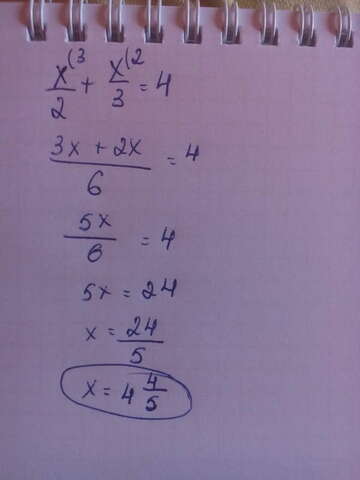 x(3/2 + x(2/3 = 4
3x + 2x/6 = 4
5x/6 = 4
5x = 24
x = 24/5
x = 4 4/5